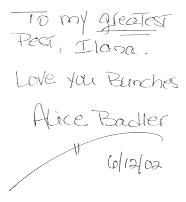 To my greatest
Pect, Ilana.
Love you Bunches
Alice Badler
6/12/02